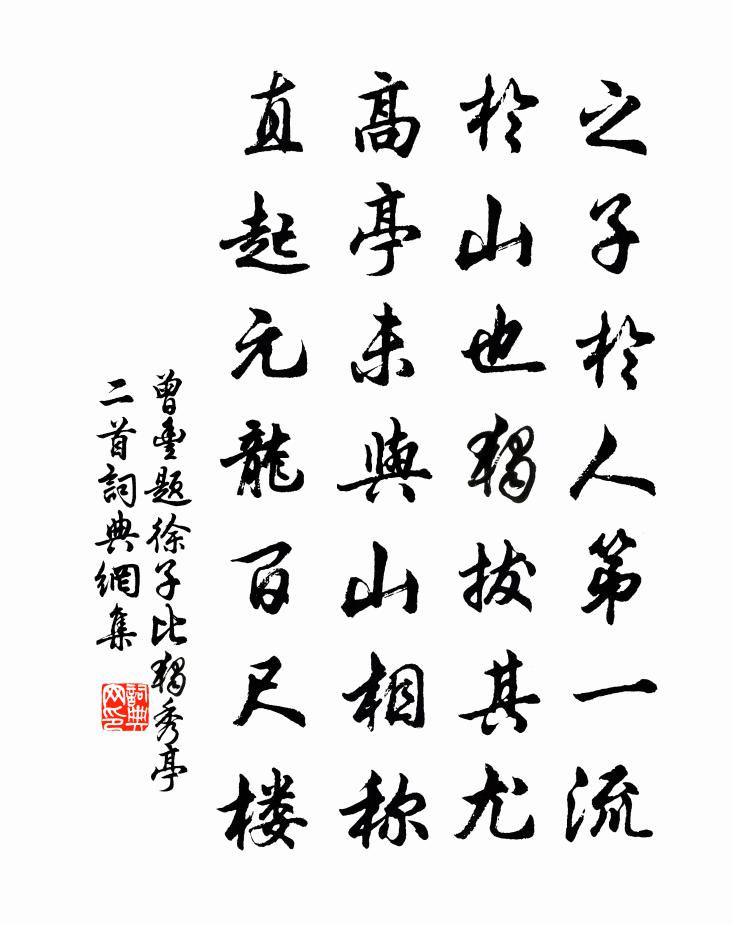 之子於人第一流
於山也獨拔其尤
高亭未與山相称
直起元龍百尺楼
曾豐題徐子比獨秀亭
二首詞典網集
詞典网印